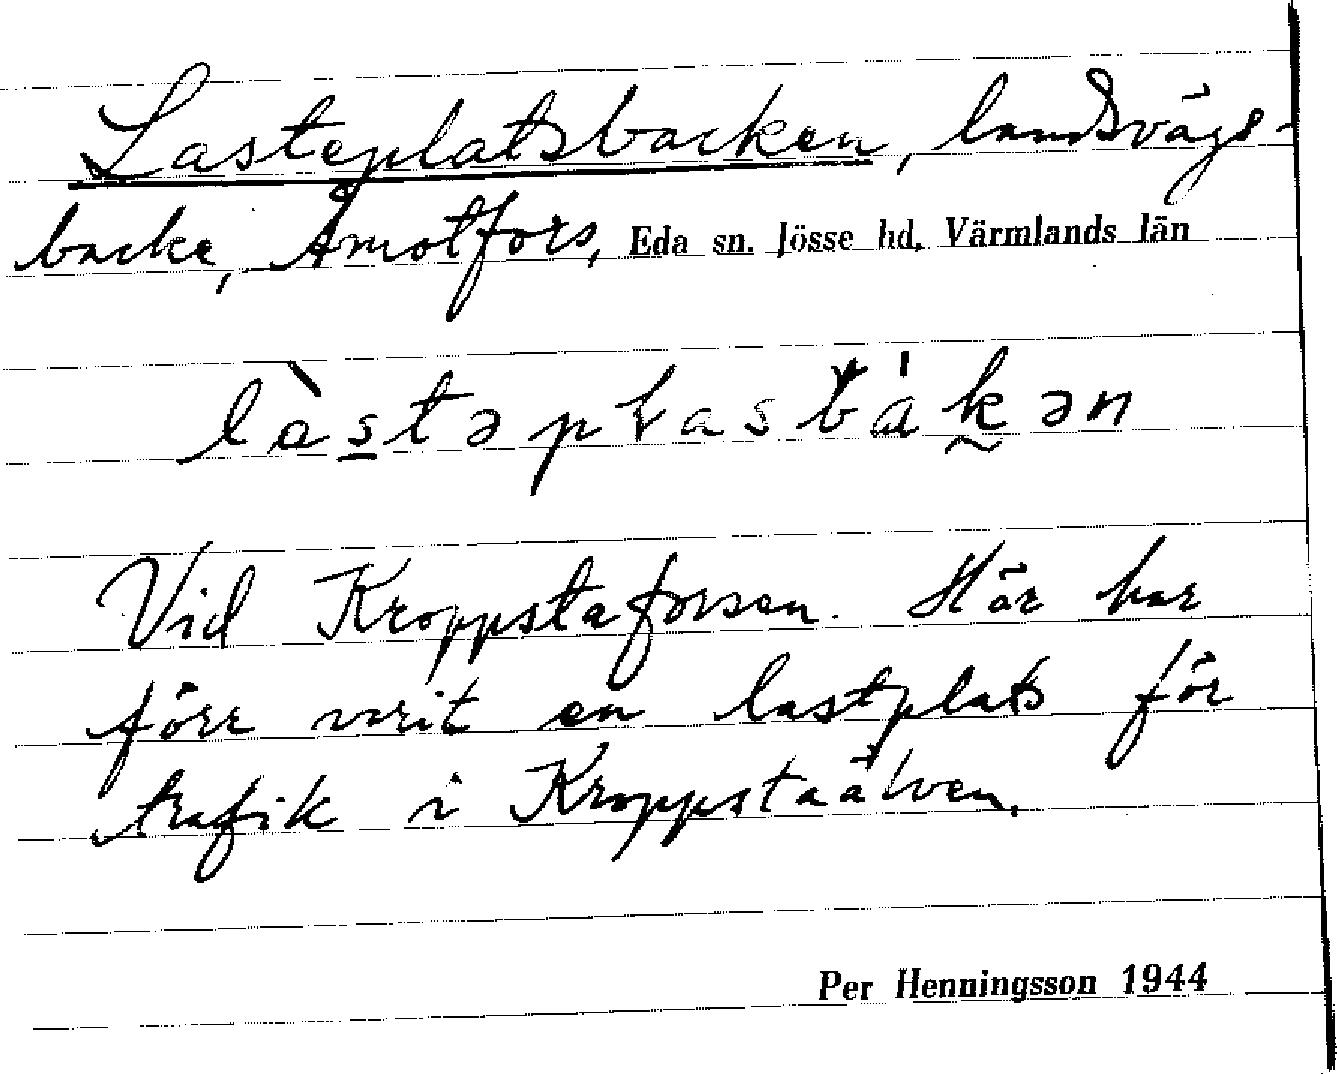 Lasteplatsbacken, landsvägs-
backe, Åmotfors, Eda sn. Jösse hd, Värmlands län
làstəpɫasbákən
Vid Kroppstaforsen. Här har
förr varit en lastplats för
trafik i Kroppstaälven.
Per Henningsson 1944